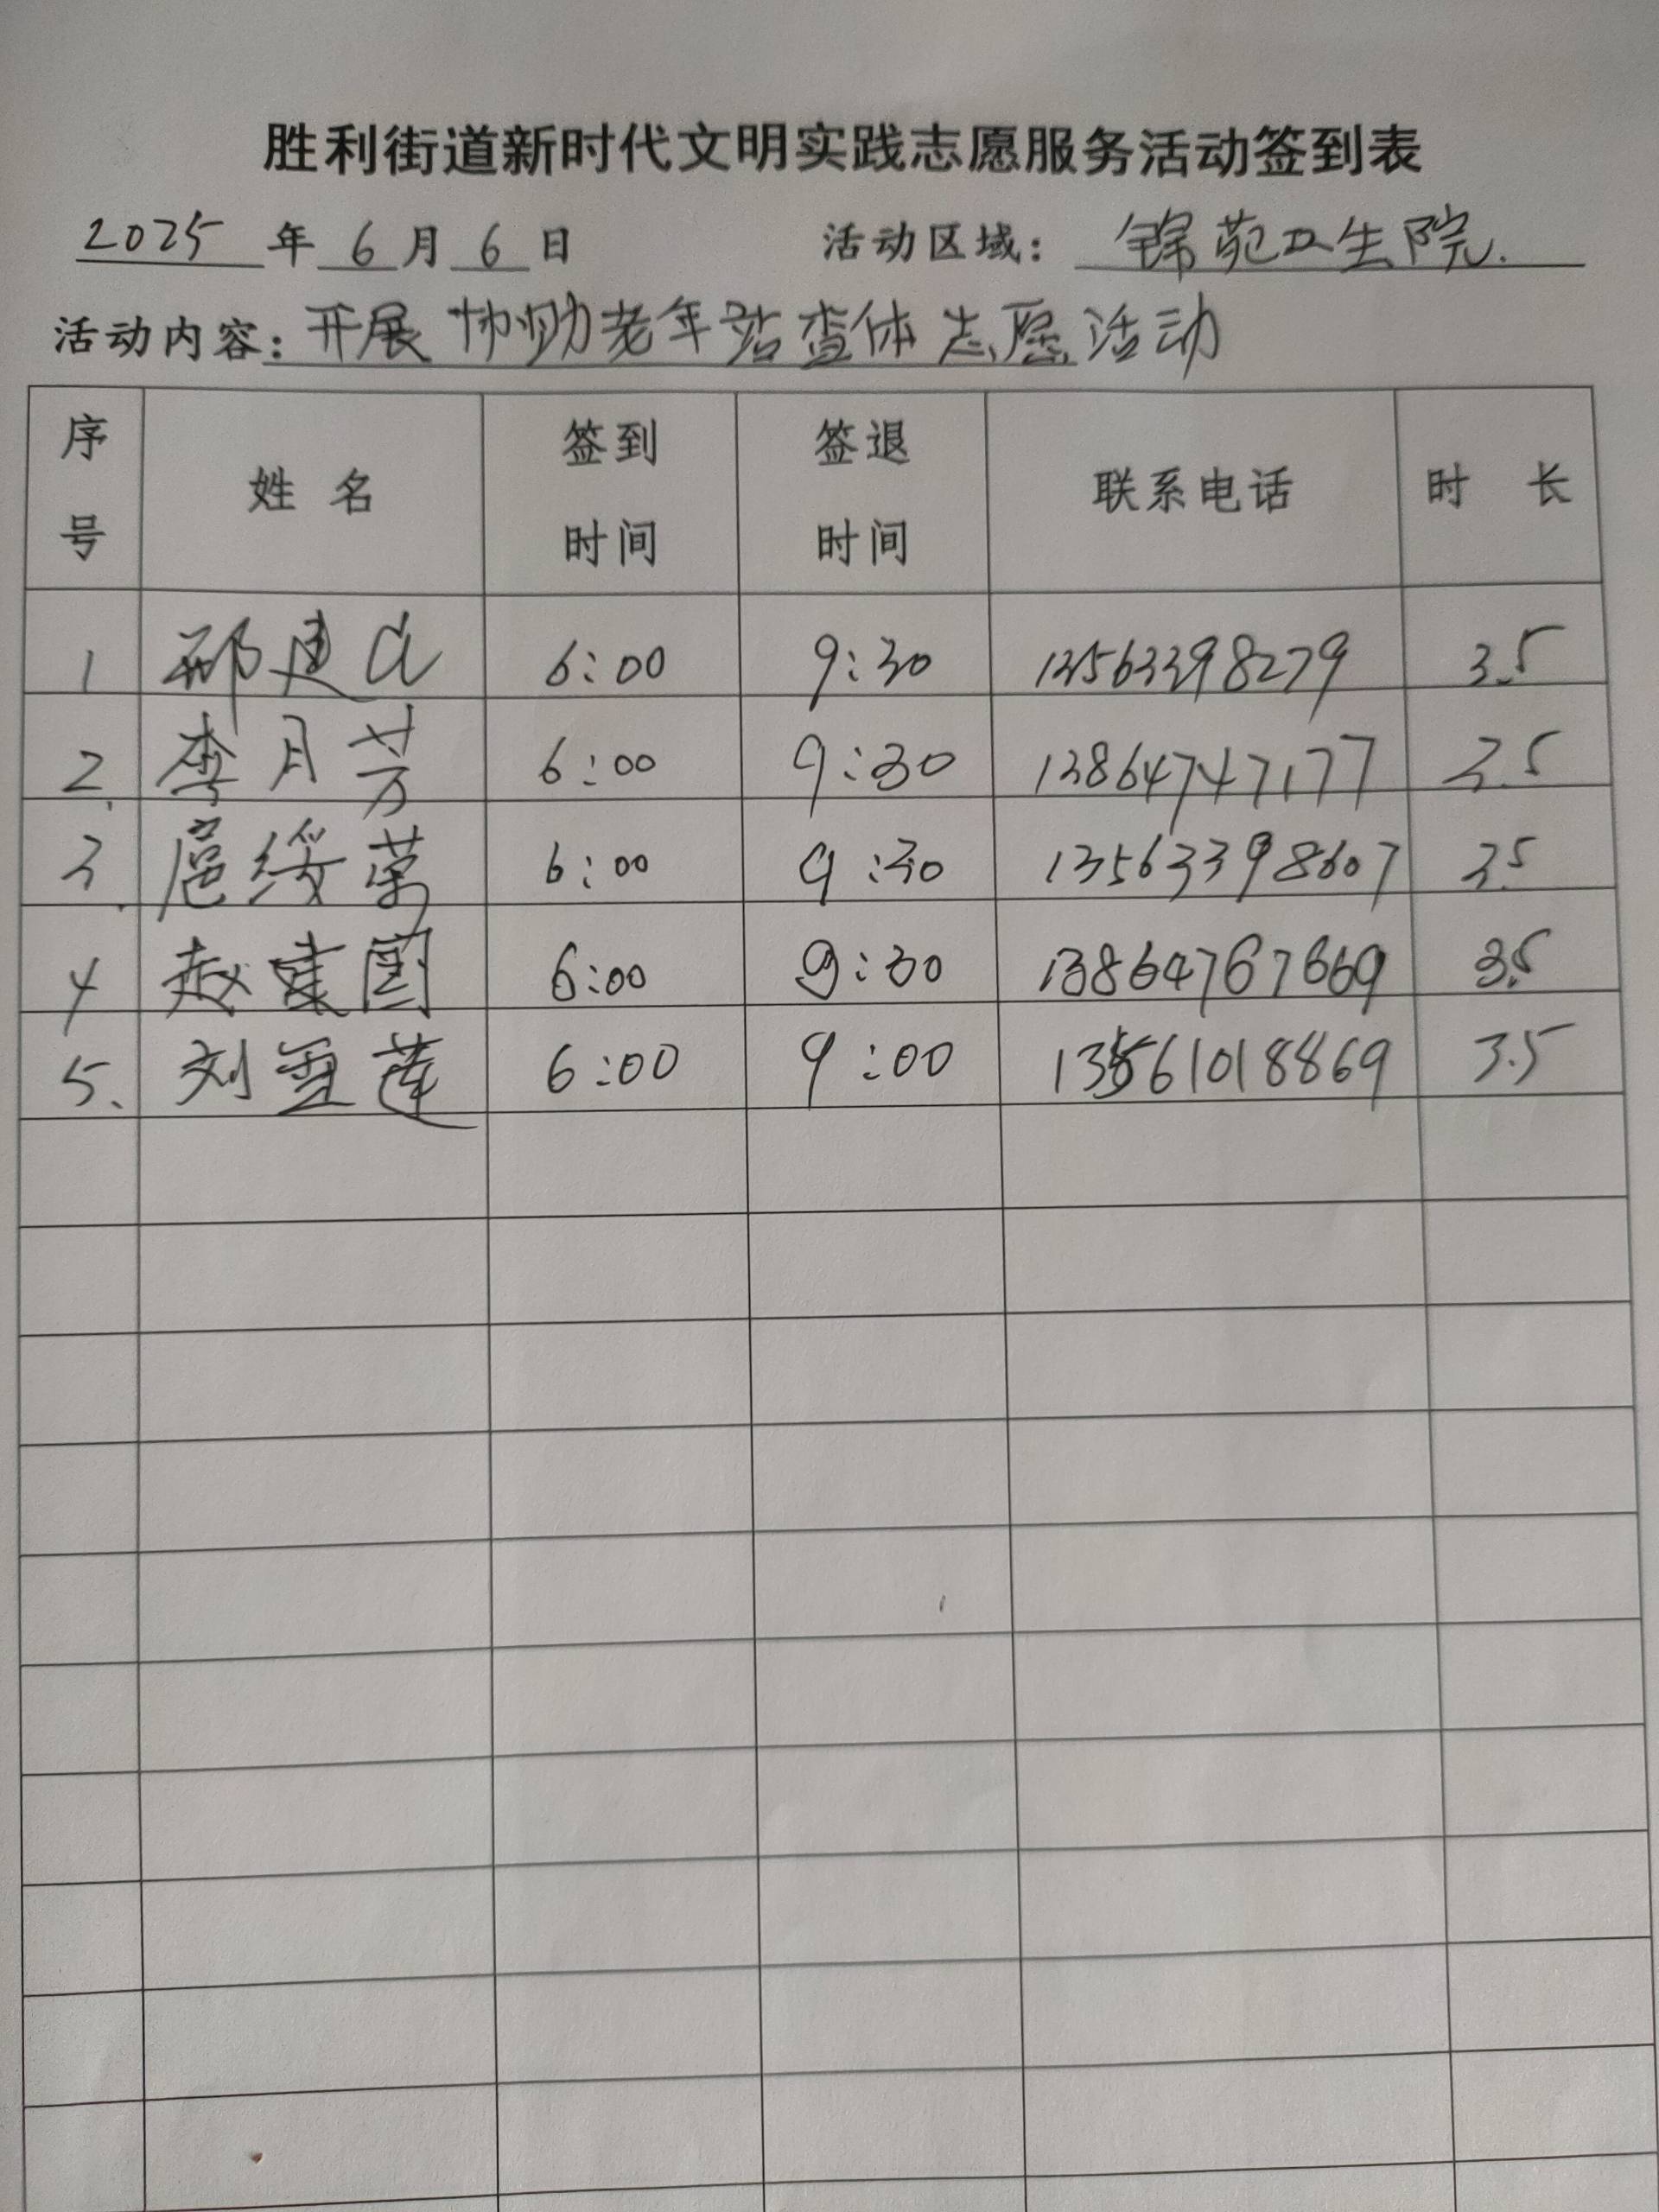 胜利街道新时代文明实践志愿服务活动签到表
2025 年 6 月 6 日 活动区域: 锦苑卫生院.
活动内容: 开展协助老年站查体志愿活动
序号 姓名 签到时间 签退时间 联系电话 时长
1 邢建 6:00 9:30 13563398279 3.5
2. 李月芳 6:00 9:30 13864747177 3.5
3. 扈绥 6:00 9:30 13563398607 3.5
4 赵建国 6:00 9:30 13864767669 3.5
5、 刘雪莲 6:00 9:00 13561018869 3.5